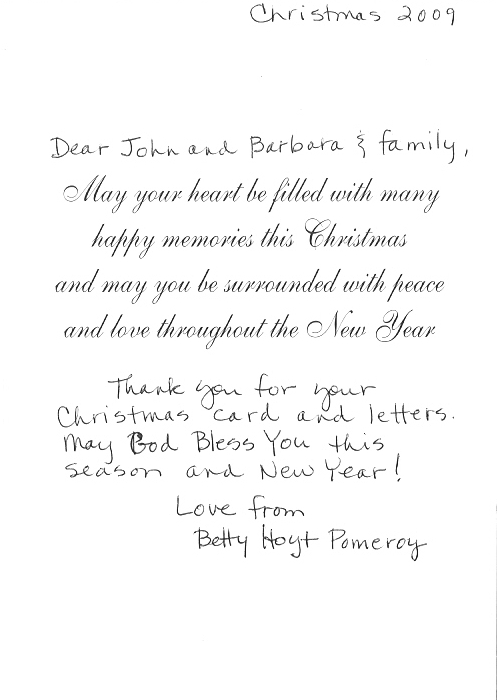 Christmas 2009
Dear John and Barbara & family,
May your heart be filled with many
happy memories this Christmas
and may you be surrounded with peace
and love throughout the New Year
Thank you for your
Christmas card and letters.
May God Bless You this
season and New Year!
Love from
Betty Hoyt Pomeroy